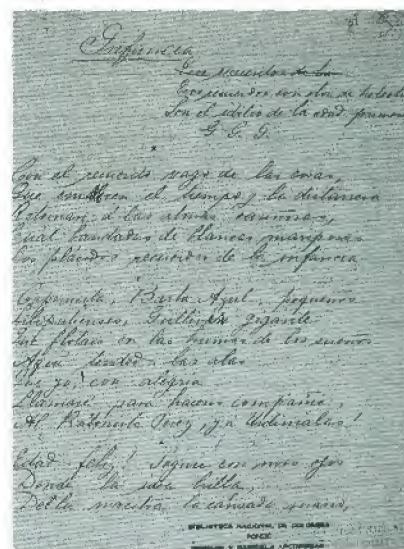 Infancia
Esos recuerdos con olor de helecho
Son el idilio de la edad primera
G. G. G.
Con el recuerdo vago de las cosas
Que embellecen el tiempo y la distancia
Retornan á las almas cariñosas,
Cual bandadas de blancas mariposas
Los plácidos recuerdos de la infancia
Caperucita, Barba Azul, pequeños
Liliputienses, Gulliver gigante
Que flotais en las brumas de los sueños
Aquí tended las alas
Que yo, con alegría
Llamaré para haceros compañía
Al Ratoncito Perez, y á Urdimalas!
Edad feliz! Seguir con vivos ojos
Donde la idea brilla
De la maestra la cansada mano,
BIBLIOTECA NACIONAL DE COLOMBIA
FONDO